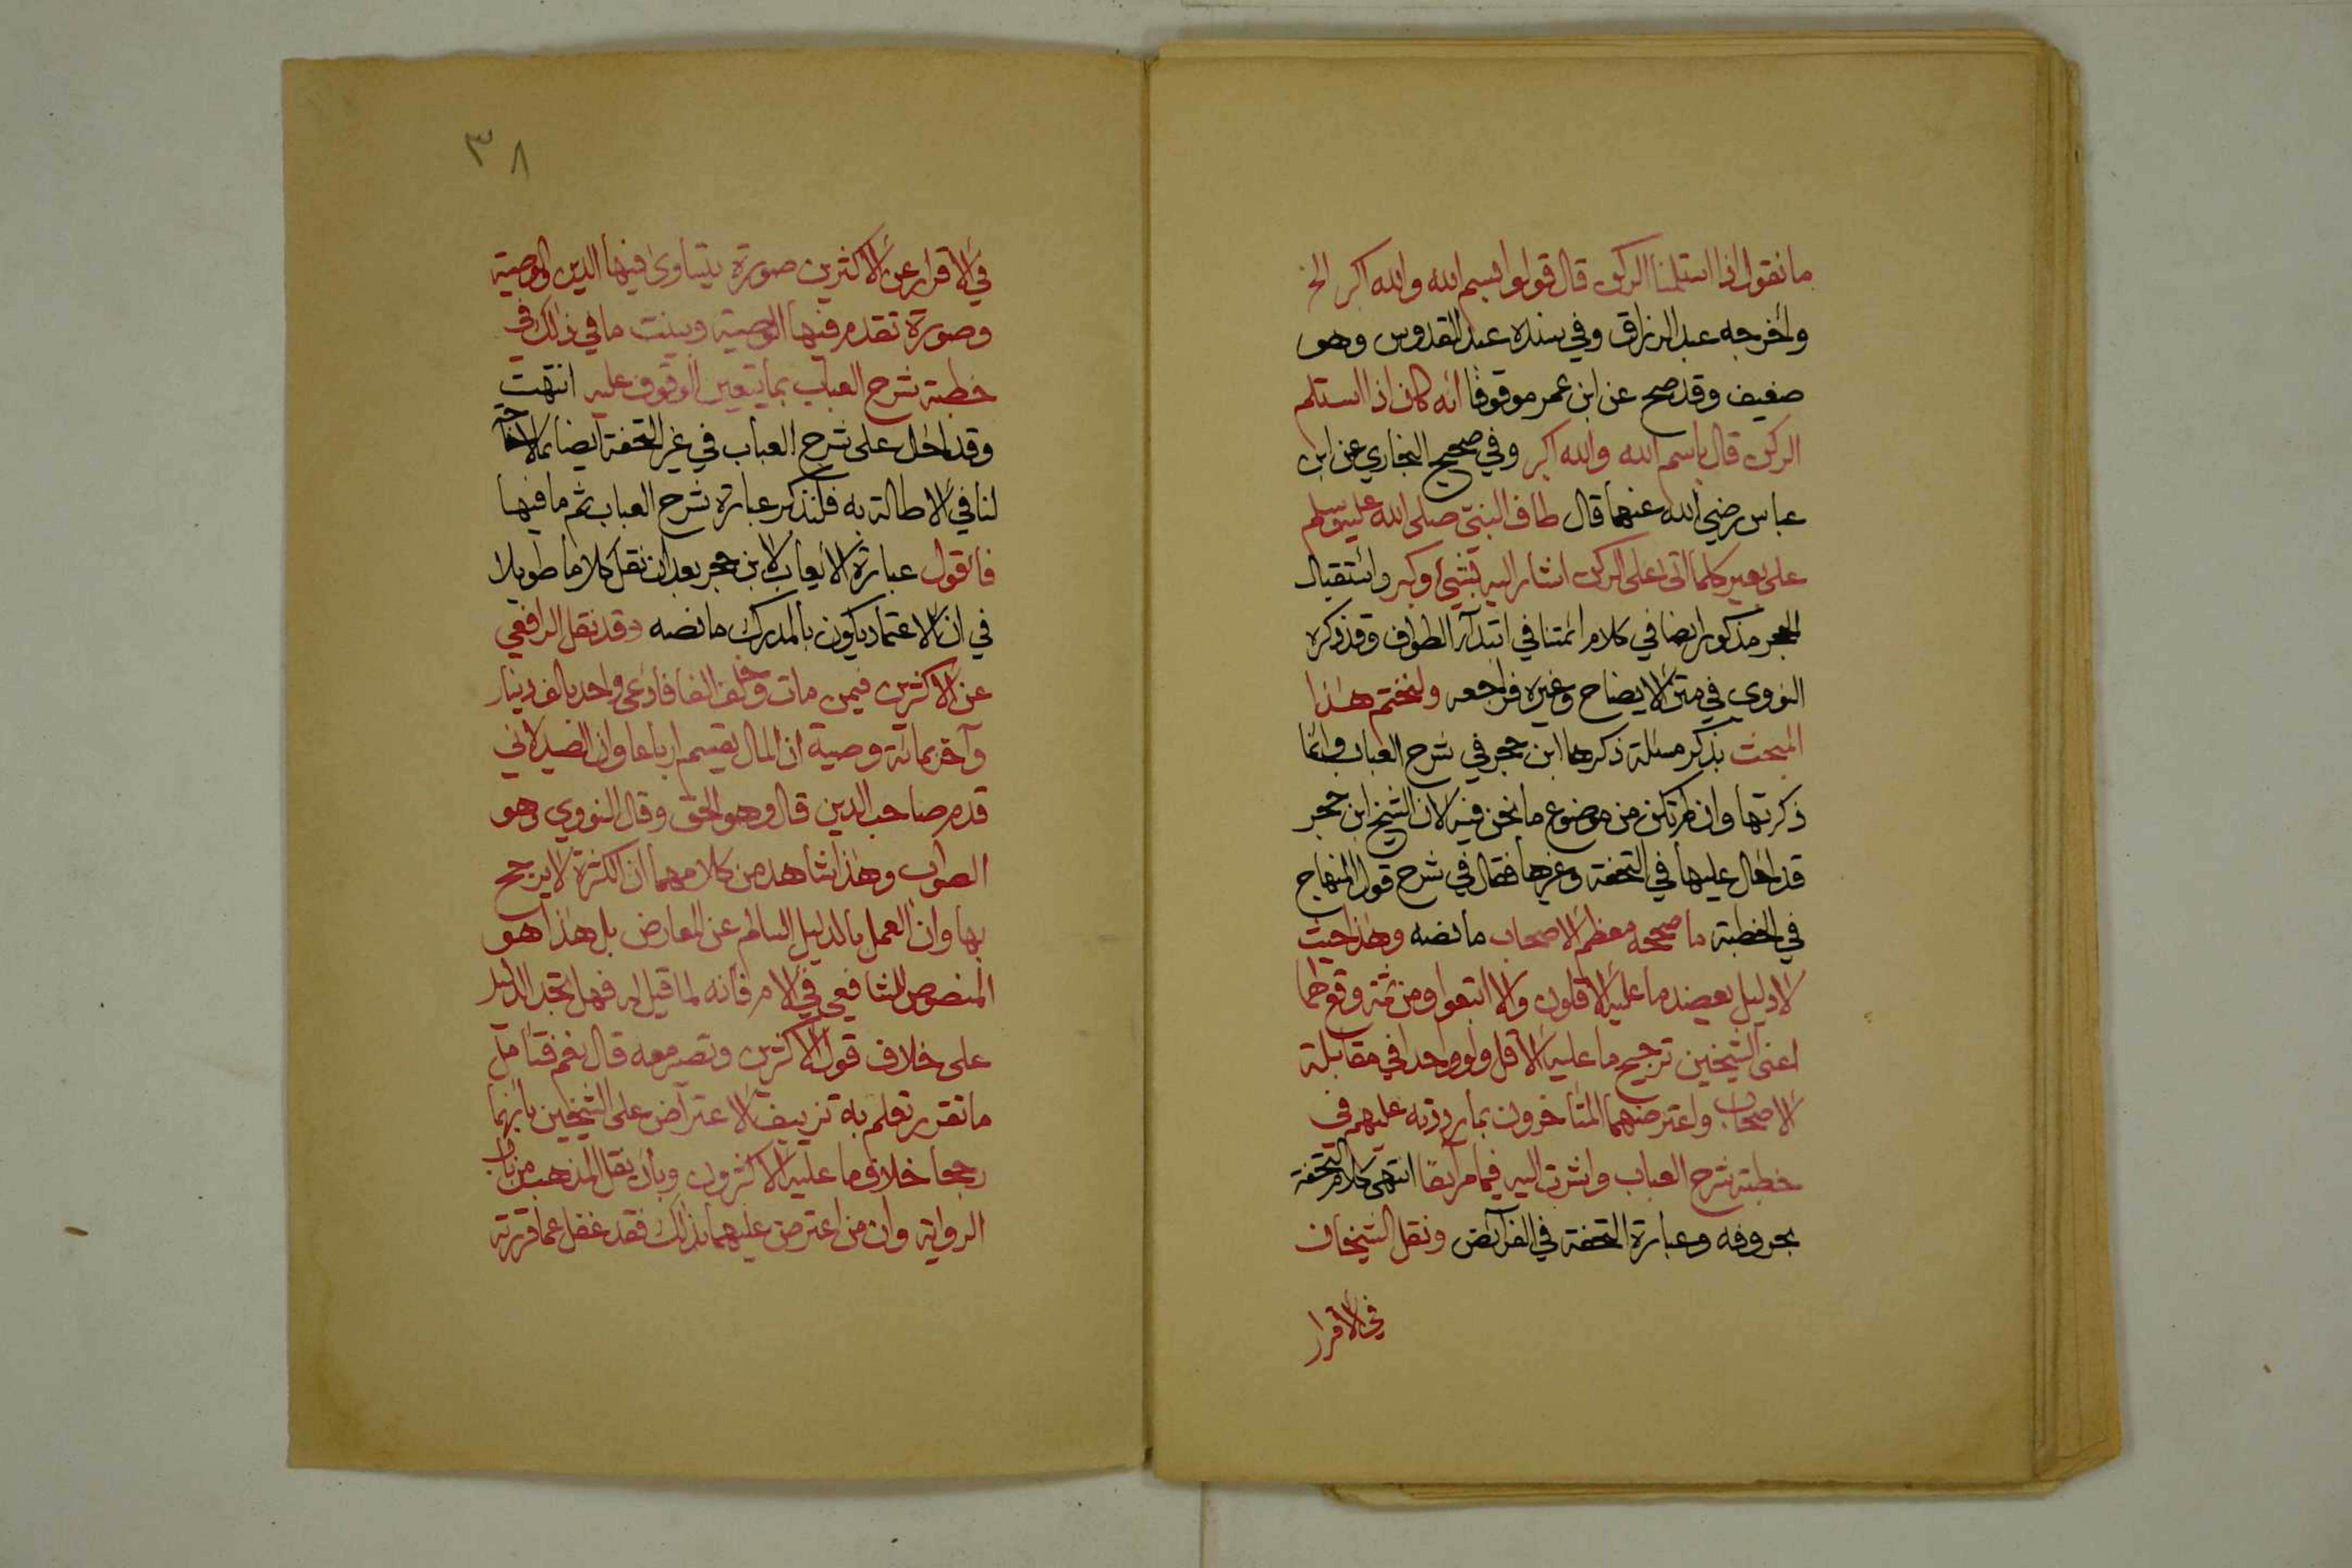 ما نقول اذا استلمنا الركن قال قولوا بسم الله والله اكبر الخ
وأخرجه عبد الرزاق وفي سنده عبد القدوس وهو
ضعيف وقد صح عن ابن عمر موقوفا انه كان اذا استلم
الركن قال باسم الله والله اكبر وفي صحيح البخاري عن ابن
عباس رضي الله عنهما قال طاف النبي صلى الله عليه وسلم
على بعير كلما اتى على الركن اشار اليه بشيء وكبر واستقبال
الحجر مذكور ايضا في كلام ائمتنا في ابتداء الطواف وقد ذكره
النووي في متن الايضاح وغيره فراجعه ولنختم هذا
المبحث بذكر مسئلة ذكرها ابن حجر في شرح العباب وانما
ذكرتها وان لم تكن من موضوع ما نحن فيه لان الشيخ ابن حجر
قد احال عليها في التحفة وغيرها فقال في شرح قول المنهاج
في الخطبة ما صححه معظم الاصحاب ما نصه وهذا حيث
لا دليل يعضد ما عليه الاقلون والا اتبعوا ومن ثمة وقع لهما
اعنى الشيخين ترجيح ما عليه الاقل ولو واحدا في مقابلة
الاصحاب واعترضهما المتأخرون بما رددته عليهم في
خطبة شرح العباب واشرت اليه فيما مر آنفا انتهى كلام التحفة
بحروفه وعبارة التحفة في الفرائض ونقل الشيخان
في الاقرار
٣٨
في الاقرار عن الاكثرين صورة يتساوى فيها الدين والوصية
وصورة تقدم فيها الوصية وبينت ما في ذلك في
خطبة شرح العباب بما يتعين الوقوف عليه انتهت
وقد احال على شرح العباب في غير التحفة ايضا مما لا حاجة
لنا في الاطالة به فلنذكر عبارة شرح العباب ثم ما فيها
فأقول عبارة الايعاب لابن حجر بعد ان نقل كلاما طويلا
في ان الاعتماد يكون بالمدرك ما نصه وقد نقل الرافعي
عن الاكثرين فيمن مات وخلف الفا فادعى واحد بالف دينار
وآخر بمائة وصية ان المال يقسم ارباعا وان الصيدلاني
قدم صاحب الدين قال وهو الحق وقال النووي وهو
الصواب وهذا شاهد من كلامهما ان الكثرة لا يرجح
بها وان العمل بالدليل السالم عن المعارض بل هذا هو
المنصوص للشافعي في الام فانه لما قيل له فهل تجد الدليل
على خلاف قول الاكثرين وتصر معه قال نعم فتأمل
ما تقرر تعلم به تزييف الاعتراض على الشيخين بانهما
رجحا خلاف ما عليه الاكثرون وبان نقل المذهب من باب
الرواية وان من اعترض عليهما بذلك فقد غفل عما قررته